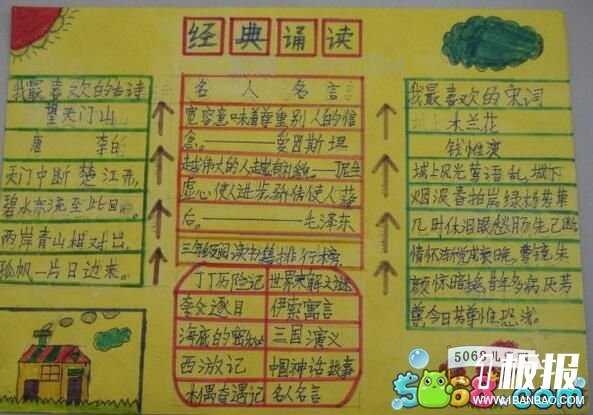 经典诵读
我最喜欢的古诗
望天门山
唐 李白
天门中断楚江开,
碧水东流至此回。
两岸青山相对出,
孤帆一片日边来。
名人名言
宽容意味道尊重别人的信
念。——爱因斯坦
越伟大的人越有礼貌——
虚心使人进步骄傲使人落
后。——毛泽东
读书籍排行榜
丁丁历险记 世界未解之谜
夸父逐日 伊索寓言
海底的 三国演义
西游记 中国神话故事
木偶奇遇记 名人名言
我最喜欢的宋词
木兰花
钱惟演
城上风光莺语乱,城下
烟波春拍岸绿杨芳草
几时休泪眼愁肠先已断
情怀渐觉成衰晚,鸾镜朱
颜惊暗换,昔年多病厌芳
尊今日芳尊惟恐浅。
5068儿
板报
1BANBAO.COM